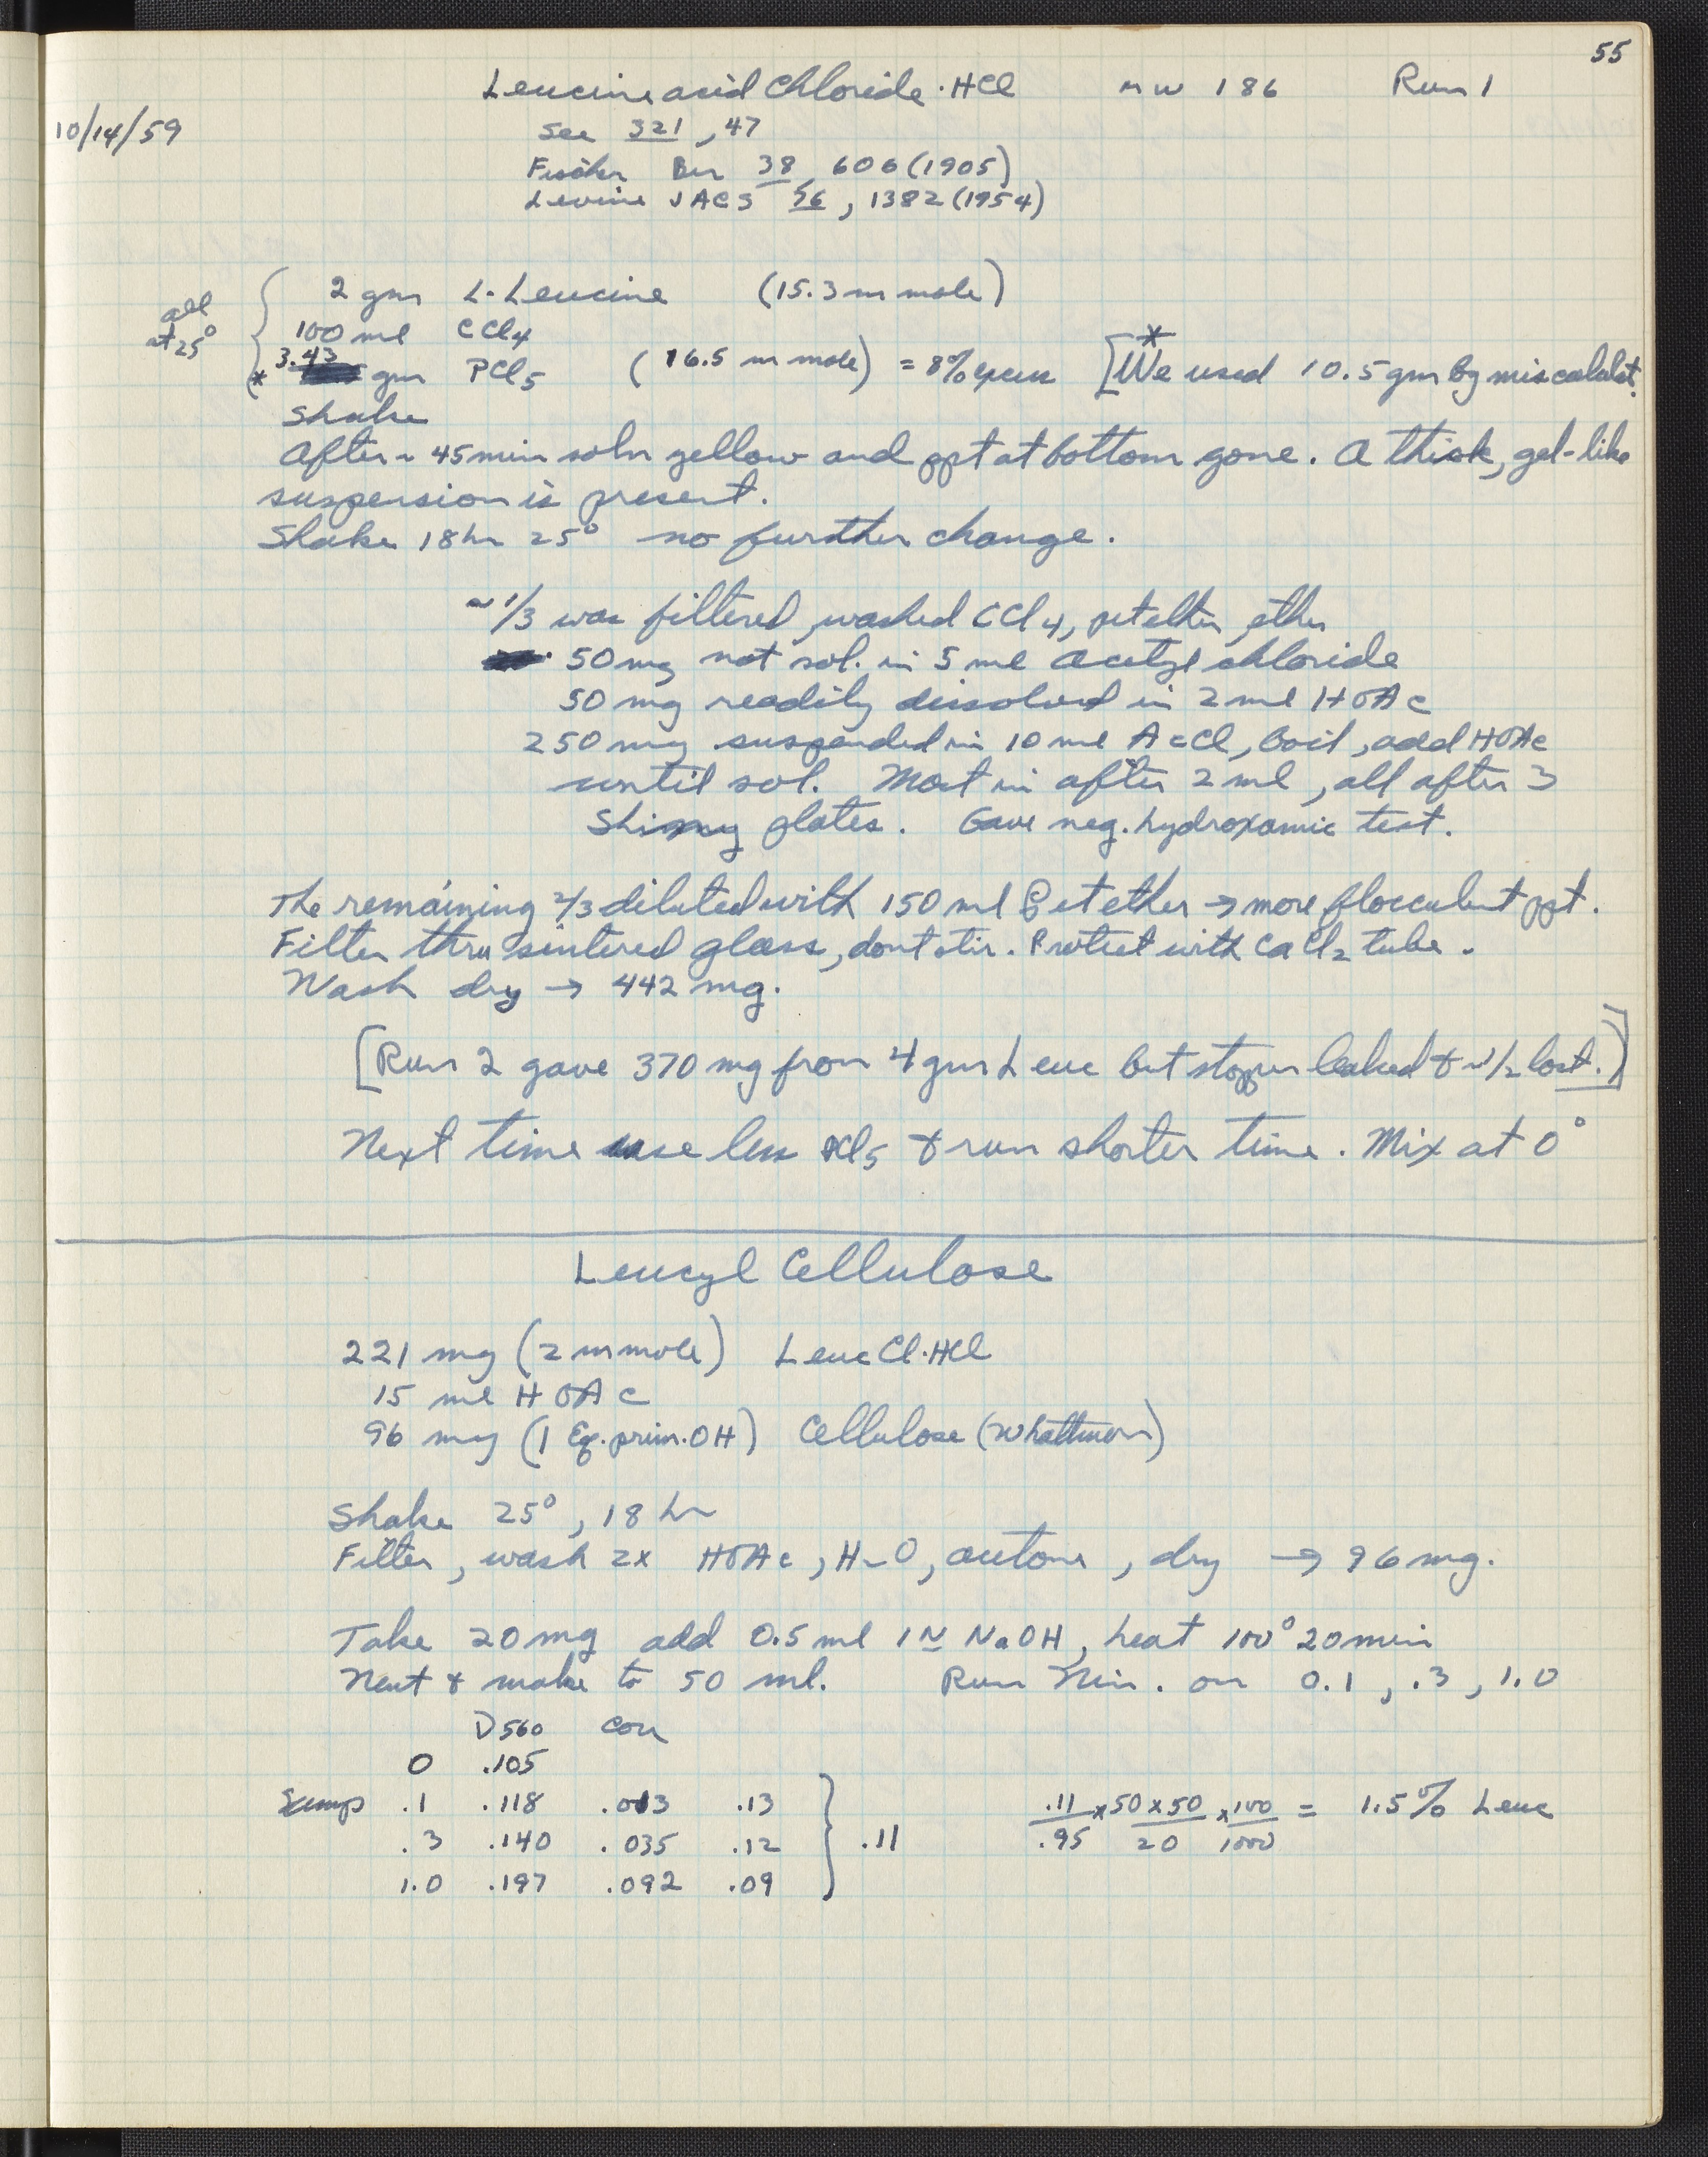 55
Leucine acid Chloride·HCl   MW 186   Run 1
10/14/59
See 321, 47
Fischer Ber 38, 606 (1905)
Levine JACS 56, 1382 (1954)
all at 25° { 2 gm L-Leucine (15.3 m mole)
100 ml CCl4
* 3.43 gm PCl5 (16.5 m mole) = 8% excess [* We used 10.5 gm by miscalculat.
Shake
After ~ 45 min soln yellow and ppt at bottom gone. A thick, gel-like
suspension is present.
Shake 18 hr 25° no further change.
~ 1/3 was filtered, washed CCl4, pet ether, ether
50 mg not sol. in 5 ml acetyl chloride
50 mg readily dissolved in 2 ml HOAc
250 mg suspended in 10 ml AcCl, boil, add HOAc
until sol. Most in after 2 ml, all after 3
Shiny plates. Gave neg. hydroxamic test.
The remaining 2/3 diluted with 150 ml Pet ether → more flocculent ppt.
Filter thru sintered glass, dont stir. Protect with CaCl2 tube.
Wash dry → 442 mg.
[Run 2 gave 370 mg from 4 gm Leuc but stopper leaked & ~1/2 lost.]
Next time use less PCl5 & run shorter time. Mix at 0°
Leucyl Cellulose
221 mg (2 m mole) Leuc Cl·HCl
15 ml HOAc
96 mg (1 Eq. prim. OH) Cellulose (Whattman)
Shake 25°, 18 hr
Filter, wash 2x HOAc, H2O, acetone, dry → 96 mg.
Take 20 mg add 0.5 ml 1N NaOH, heat 100° 20 min
Neut & make to 50 ml. Run Nin. on 0.1, .3, 1.0
D560 corr
0 .105
.1 .118 .013 .13
.3 .140 .035 .12 } .11   .11/.95 x 50 x 50/20 x 100/1000 = 1.5% Leuc
1.0 .197 .092 .09